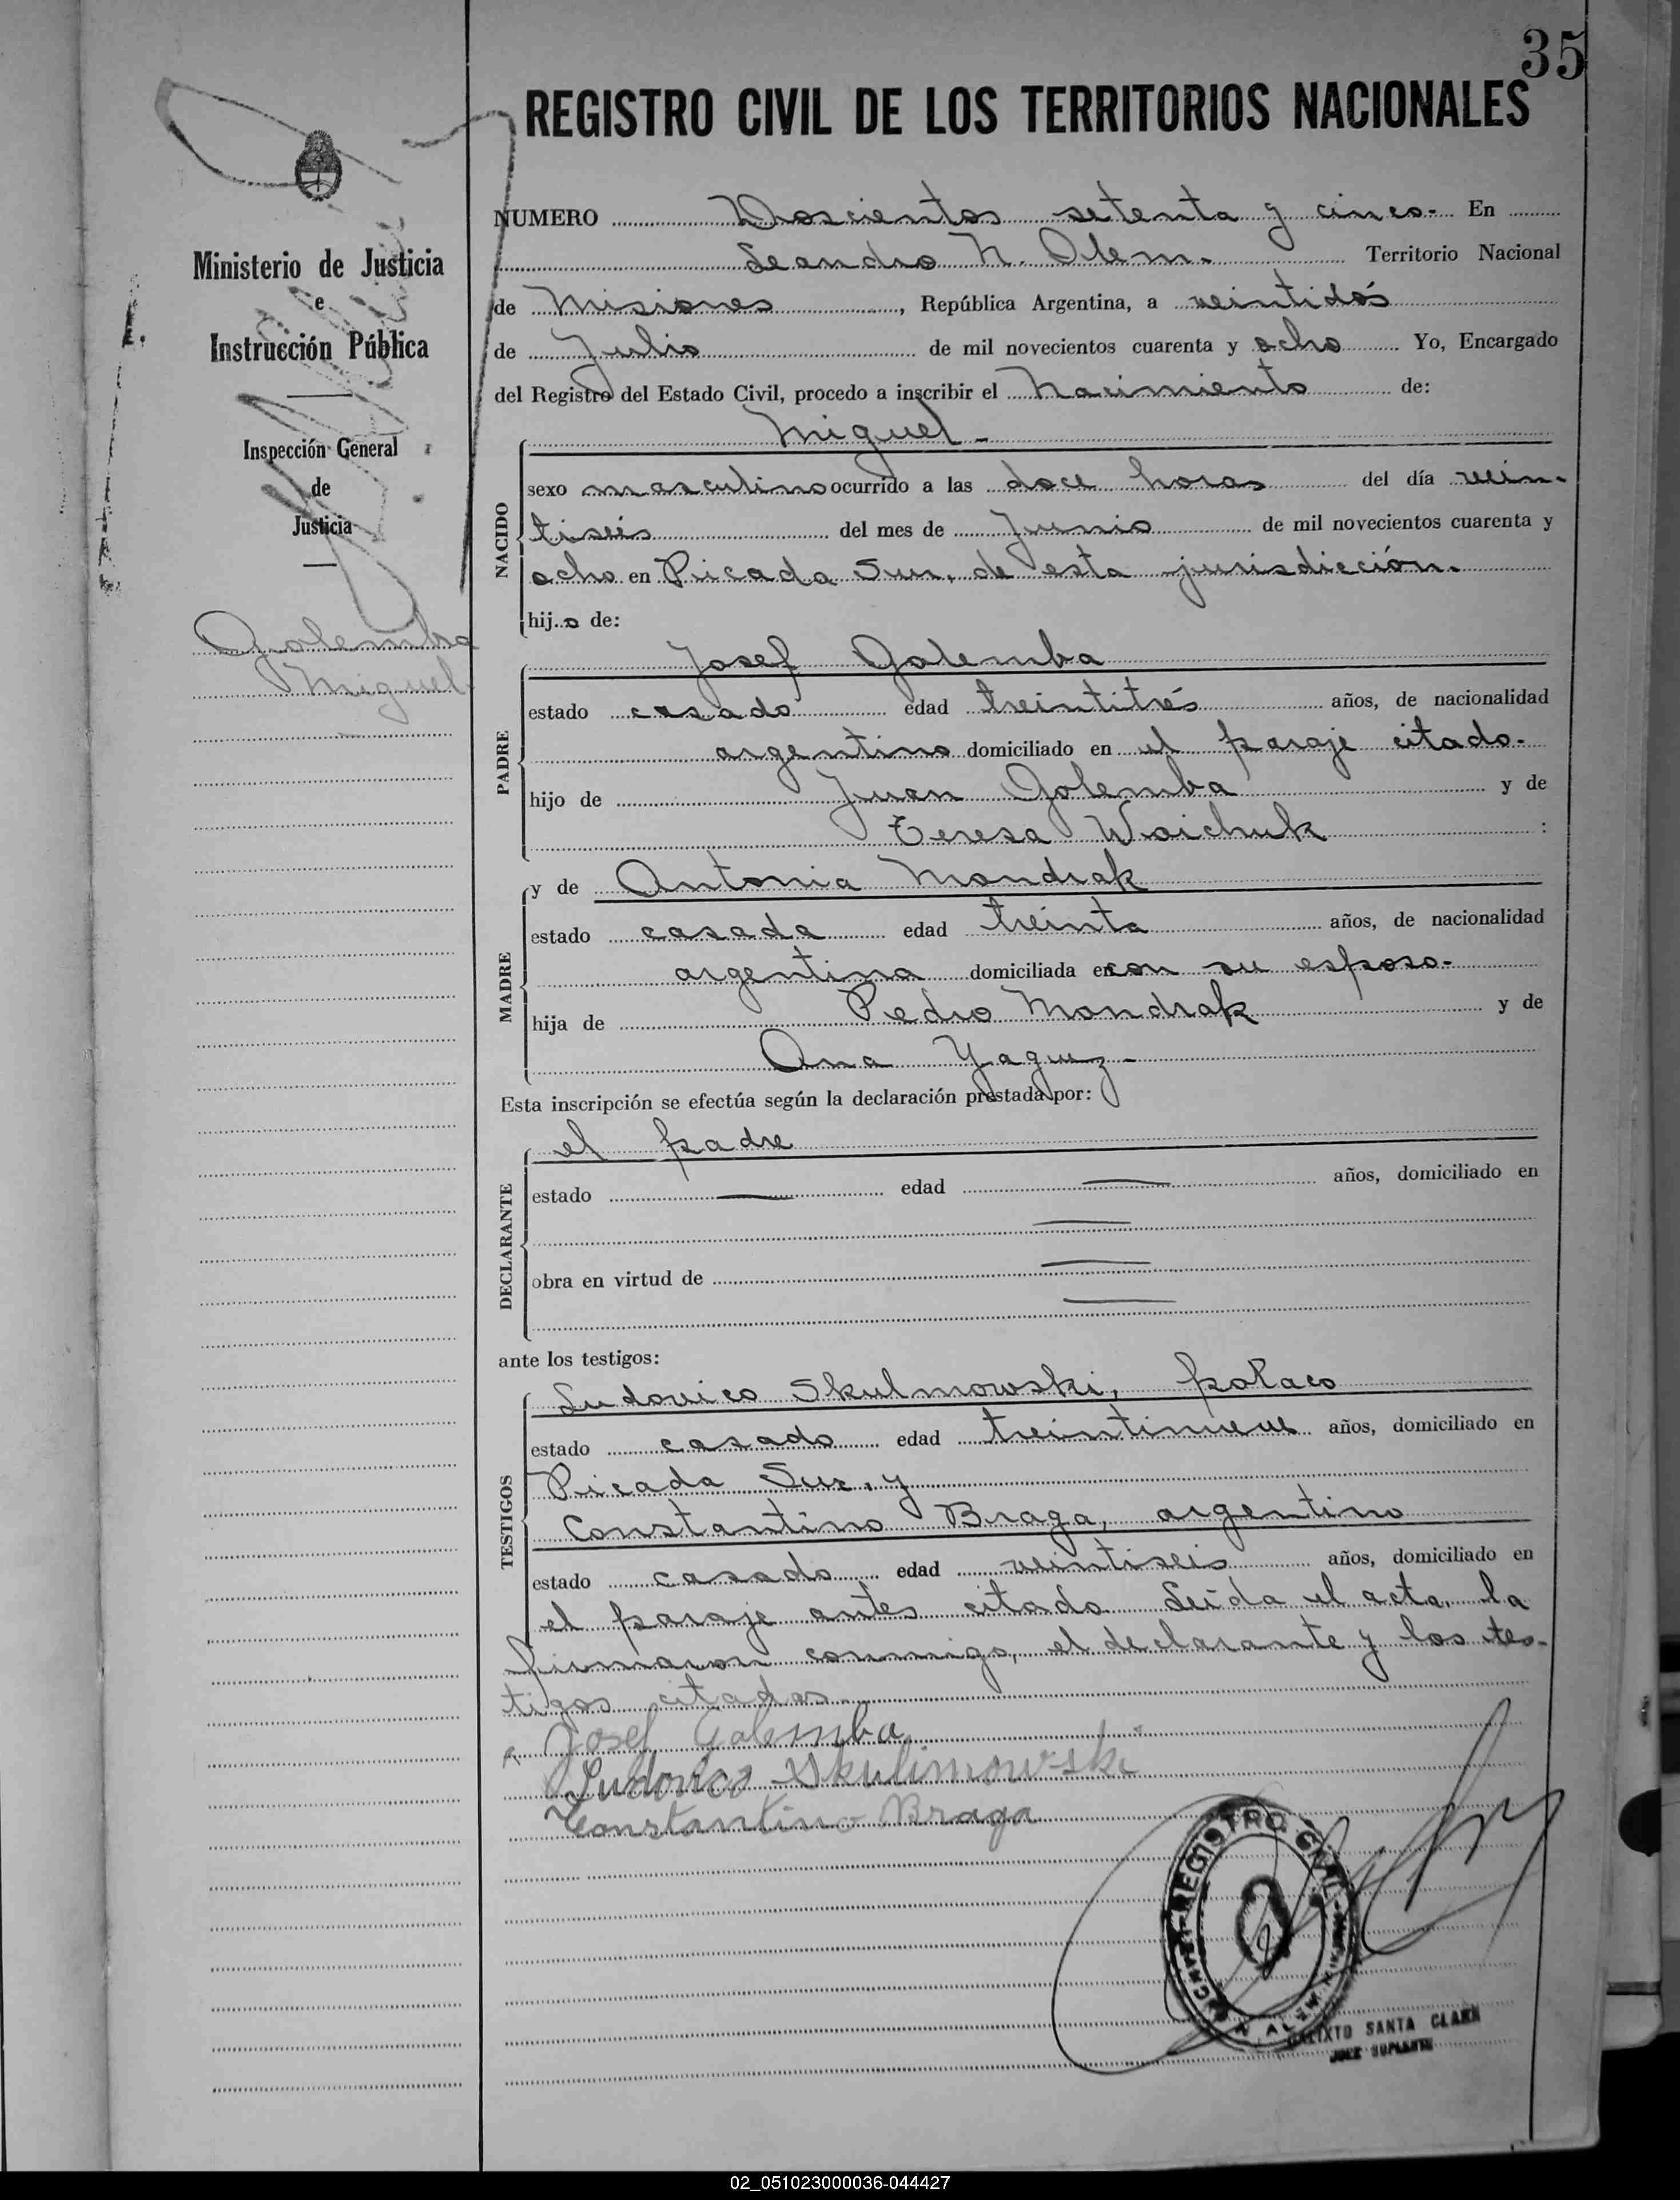 35
REGISTRO CIVIL DE LOS TERRITORIOS NACIONALES
Ministerio de Justicia
e
Instrucción Pública
Inspección General
de
Justicia
Golemba
Miguel
NUMERO Doscientos setenta y cinco.- En
Leandro N. Alem.- Territorio Nacional
de Misiones, República Argentina, a veintidós
de Julio de mil novecientos cuarenta y ocho Yo, Encargado
del Registro del Estado Civil, procedo a inscribir el Nacimiento de:
NACIDO
Miguel.-
sexo masculino ocurrido a las doce horas del día vein-
tiseis del mes de Junio de mil novecientos cuarenta y
ocho en Picada Sur, de esta jurisdicción.
hij.o de:
PADRE
Josef Golemba
estado casado edad treintitrés años, de nacionalidad
argentino domiciliado en el paraje citado.-
hijo de Juan Golemba y de
Teresa Woichuk :
MADRE
y de Antonia Mondrak
estado casada edad treinta años, de nacionalidad
argentina domiciliada en con su esposo.-
hija de Pedro Mondrak y de
Ana Yaguz.-
Esta inscripción se efectúa según la declaración prestada por:
DECLARANTE
el padre
estado — edad — años, domiciliado en
—
obra en virtud de —
—
ante los testigos:
TESTIGOS
Ludovico Skulmowski, polaco
estado casado edad treintinueve años, domiciliado en
Picada Sur, y
Constantino Braga, argentino
estado casado edad veintiseis años, domiciliado en
el paraje antes citado Leída el acta, la
firmaron conmigo, el declarante y los tes-
tigos citados.-
Josef Golemba
Ludovico Skulimowski
Constantino Braga
REGISTRO CIVIL
CALIXTO SANTA CLARA
JUEZ SUPLENTE
02_051023000036-044427